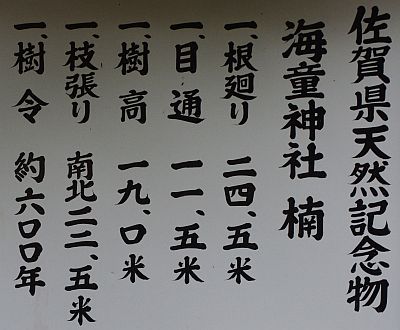 佐賀県天然記念物
海童神社 楠
一、根廻り 二四、五米
一、目通 一一、五米
一、樹高 一九、〇米
一、枝張り 南北二二、五米
一、樹令 約六〇〇年